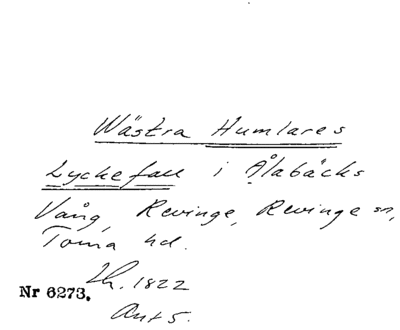 Wästra Humlares
Lyckefall i Ålabäcks
Vång, Revinge, Revinge sn,
Torna hd.
Th. 1822
Nr 6273.
Ant 5.